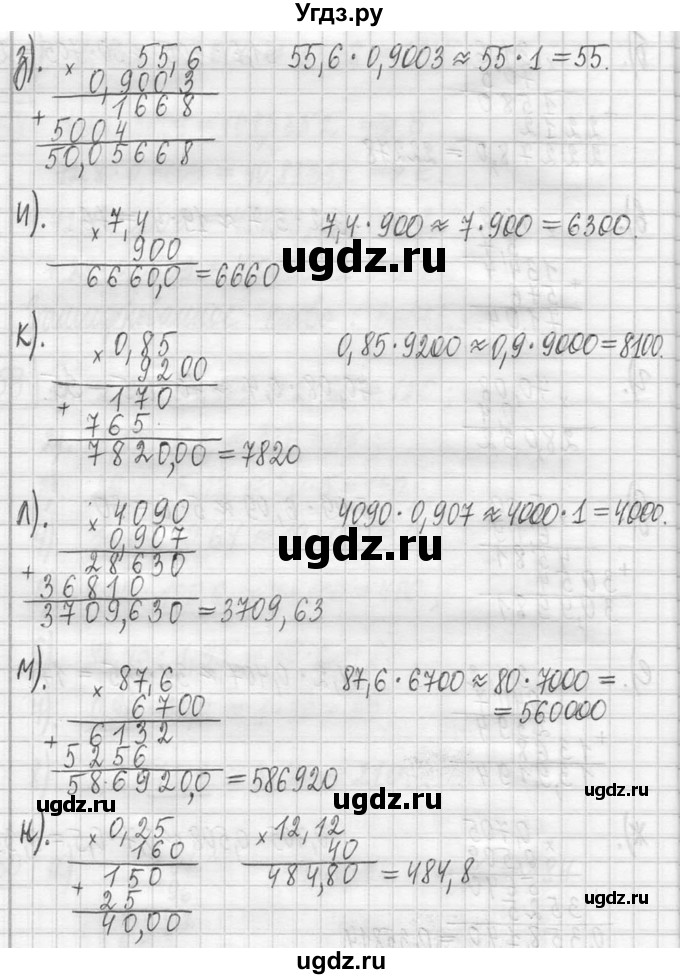 Угдз.ру
з). × 55,6 55,6 · 0,9003 ≈ 55 · 1 = 55.
0,9003
+ 1668
5004
50,05668
и). × 7,4 7,4 · 900 ≈ 7 · 900 = 6300.
900
6660,0 = 6660
ugdz.ru
к). × 0,85 0,85 · 9200 ≈ 0,9 · 9000 = 8100.
9200
+ 170
765
7820,00 = 7820
ugdz.ru
л). × 4090 4090 · 0,907 ≈ 4000 · 1 = 4000.
0,907
ugdz.ru
+ 28630
36810
3709,630 = 3709,63
м). × 87,6 87,6 · 6700 ≈ 80 · 7000 =
6700 = 560000
+ 6132
5256
586920,0 = 586920
ugdz.ru
ugdz.ru
ugdz.ru
н). × 0,25 × 12,12
160 40
+ 150 484,80 = 484,8
25
40,00
ugdz.ru
ugdz.ru
ugdz.ru